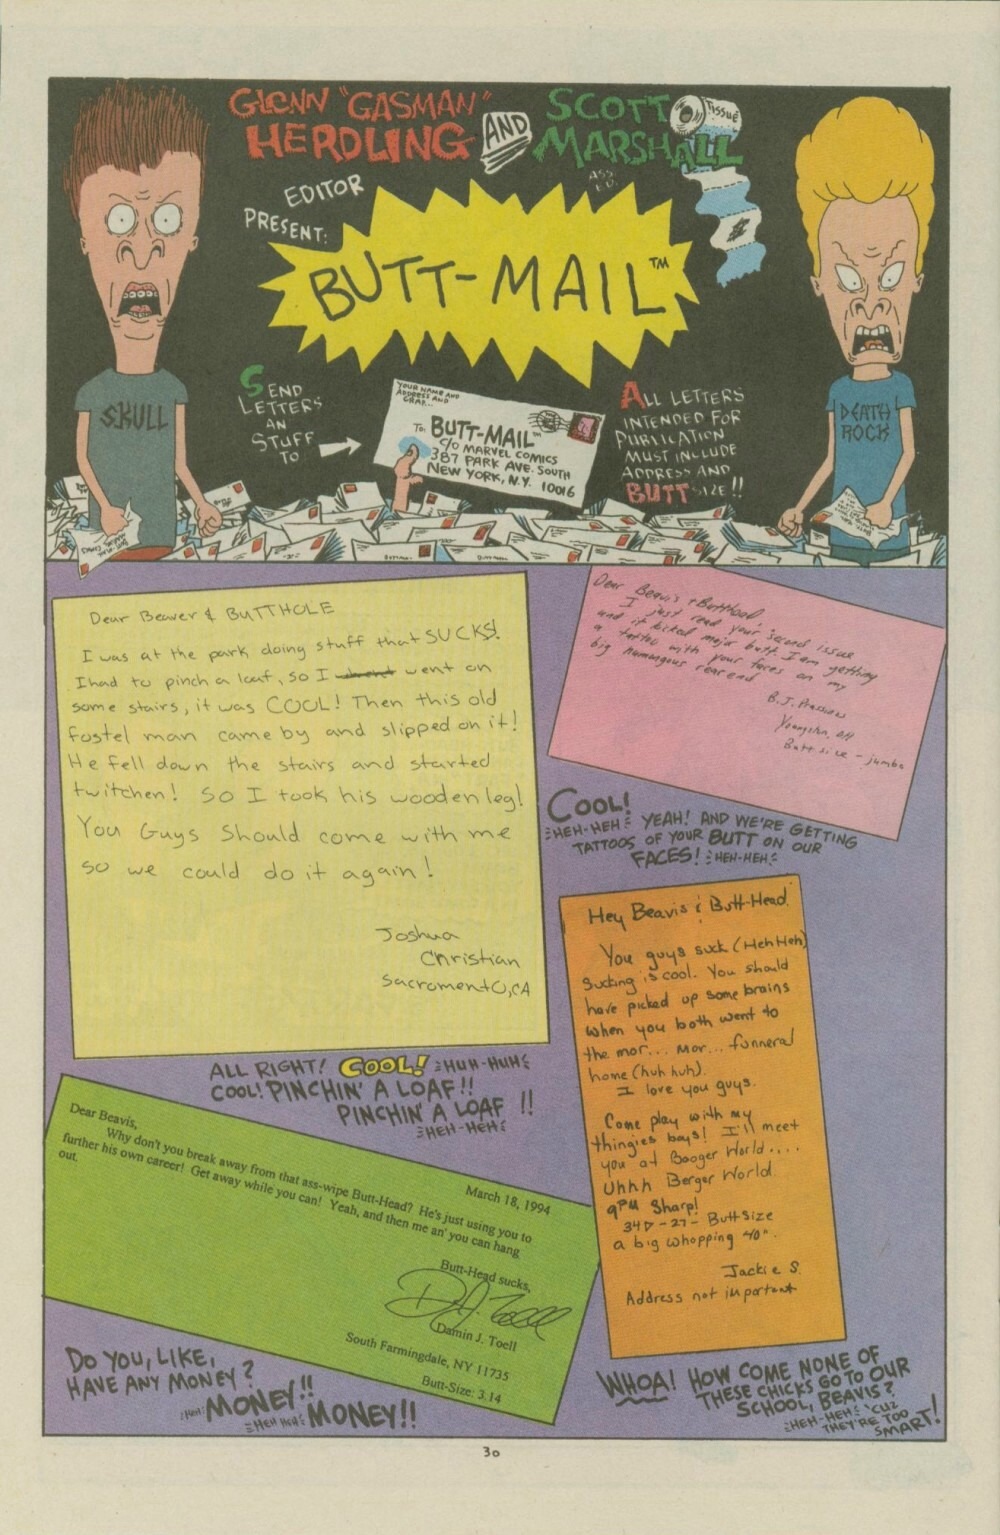 GLENN "GASMAN"
HERDLING
EDITOR
AND
SCOTT
MARSHALL
ASS.
ED.
TISSUE
PRESENT:
BUTT-MAIL™
SKULL
DEATH
ROCK
SEND
LETTERS
AN
STUFF
TO
YOUR NAME AND
ADDRESS AND
CRAP...
TO: BUTT-MAIL™
C/O MARVEL COMICS
387 PARK AVE. SOUTH
NEW YORK, N.Y. 10016
ALL LETTERS
INTENDED FOR
PUBLICATION
MUST INCLUDE
ADDRESS AND
BUTT SIZE!!
Dear Beaver & BUTTHOLE
I was at the park doing stuff that SUCKS!
I had to pinch a loaf, so I went on
some stairs, it was COOL! Then this old
fostel man came by and slipped on it!
He fell down the stairs and started
twitchen! So I took his wooden leg!
You Guys Should come with me
so we could do it again!
Joshua
Christian
SacromentO, CA
ALL RIGHT! COOL! HUH-HUH
COOL! PINCHIN' A LOAF!!
PINCHIN' A LOAF!!
HEH-HEH
Dear Beavis + Butthead,
I just read your second issue
and it kicked major butt. I am getting
a tattoo with your faces on my
big humungous rear end
B.J.
OH
Butt size - jumbo
COOL!
HEH-HEH YEAH! AND WE'RE GETTING
TATTOOS OF YOUR BUTT ON OUR
FACES! HEH-HEH
Hey Beavis & Butt-Head.
You guys suck (Heh Heh)
Sucking is cool. You should
have picked up some brains
when you both went to
the mor... mor... funneral
home (huh huh).
I love you guys.
Come play with my
thingies boys! I'll meet
you at Booger World....
Uhhh Berger World.
9PM Sharp!
34D-27- Butt Size
a big whopping 40".
Jackie S.
Address not important
WHOA! HOW COME NONE OF
THESE CHICKS GO TO OUR
SCHOOL, BEAVIS?
HEH-HEH 'CUZ
THEY'RE TOO
SMART!
March 18, 1994
Dear Beavis,
Why don't you break away from that ass-wipe Butt-Head? He's just using you to
further his own career! Get away while you can! Yeah, and then me an' you can hang
out.
Butt-Head sucks,
Damin J. Toell
South Farmingdale, NY 11735
Butt-Size: 3.14
DO YOU, LIKE,
HAVE ANY MONEY?
HUH! MONEY!!
HEH HEH MONEY!!
30